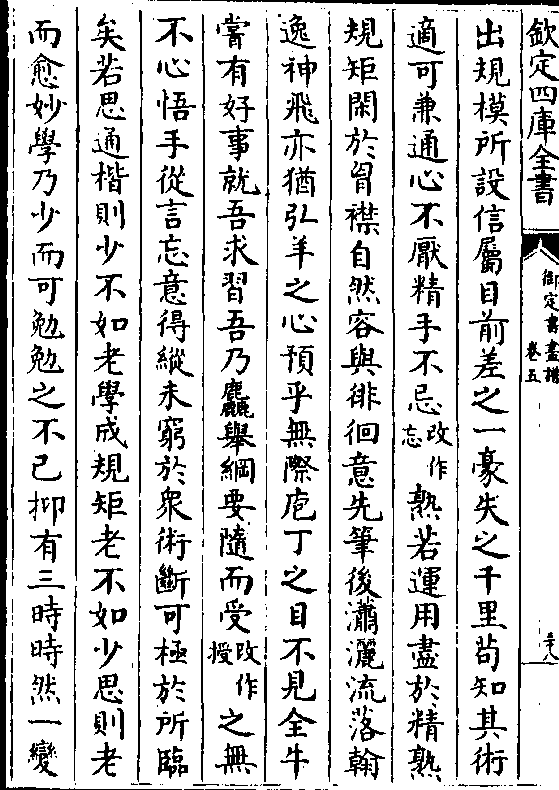 欽定四庫全書
御定書畫譜
卷五
三十八
出規模所設信屬目前差之一豪失之千里苟知其術
適可兼通心不厭精手不忌改作忘熟若運用盡於精熟
規矩閑於胷襟自然容與徘徊意先筆後瀟灑流落翰
逸神飛亦猶弘羊之心預乎無際庖丁之目不見全牛
嘗有好事就吾求習吾乃麤舉綱要隨而受改作授之無
不心悟手從言忘意得縱未窮於衆術斷可極於所臨
矣若思通楷則少不如老學成規矩老不如少思則老
而愈妙學乃少而可勉勉之不已抑有三時時然一變